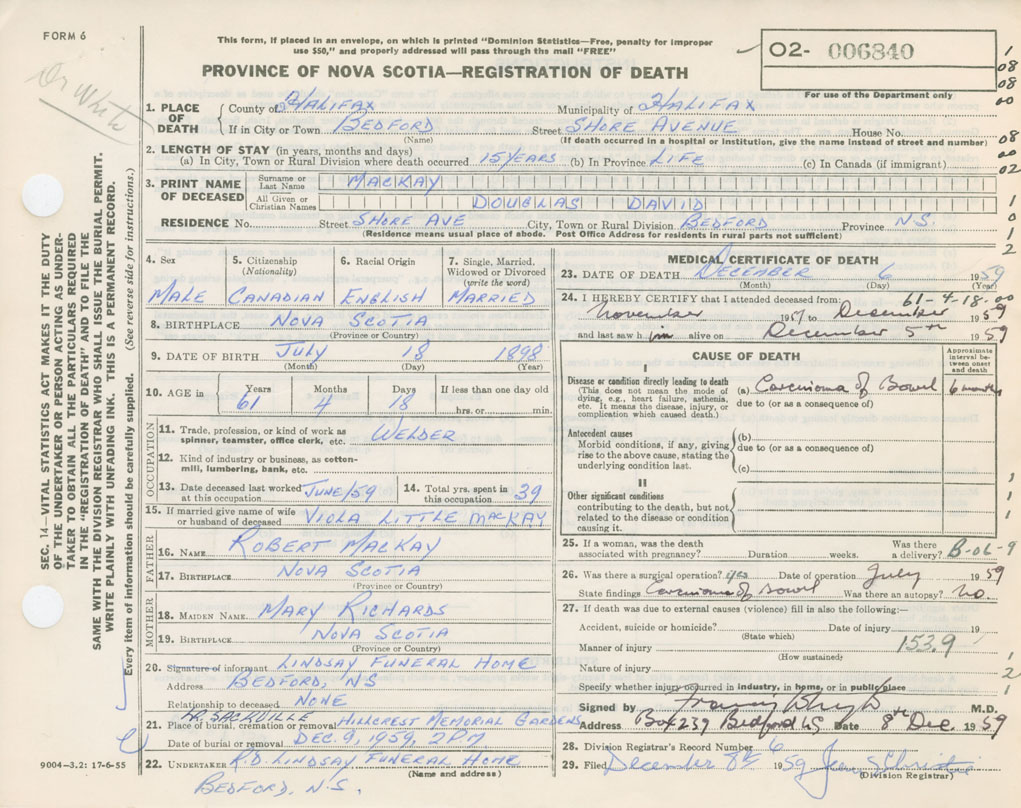 FORM 6
This form, if placed in an envelope, on which is printed "Dominion Statistics—Free, penalty for improper
use $50," and properly addressed will pass through the mail "FREE"
02- 006840
For use of the Department only
PROVINCE OF NOVA SCOTIA—REGISTRATION OF DEATH
Dr White
1
08
08
00
08
00
02
1
0
1
2
1. PLACE OF DEATH
County of HALIFAX Municipality of HALIFAX
If in City or Town BEDFORD Street SHORE AVENUE House No.
(Name) (If death occurred in a hospital or institution, give the name instead of street and number)
2. LENGTH OF STAY (in years, months and days)
(a) In City, Town or Rural Division where death occurred 15 YEARS (b) In Province LIFE (c) In Canada (if immigrant)
3. PRINT NAME OF DECEASED
Surname or Last Name MACKAY
All Given or Christian Names DOUGLAS DAVID
RESIDENCE No. Street SHORE AVE City, Town or Rural Division BEDFORD Province N.S.
(Residence means usual place of abode. Post Office Address for residents in rural parts not sufficient)
4. Sex MALE
5. Citizenship (Nationality) CANADIAN
6. Racial Origin ENGLISH
7. Single, Married, Widowed or Divorced (write the word) MARRIED
8. BIRTHPLACE NOVA SCOTIA
(Province or Country)
9. DATE OF BIRTH July 18 1898
(Month) (Day) (Year)
10. AGE in Years 61 Months 4 Days 18 If less than one day old hrs. or min.
OCCUPATION
11. Trade, profession, or kind of work as spinner, teamster, office clerk, etc. WELDER
12. Kind of industry or business, as cotton-mill, lumbering, bank, etc.
13. Date deceased last worked at this occupation JUNE/59
14. Total yrs. spent in this occupation 39
15. If married give name of wife or husband of deceased VIOLA LITTLE MACKAY
FATHER
16. NAME ROBERT MACKAY
17. BIRTHPLACE NOVA SCOTIA
(Province or Country)
MOTHER
18. MAIDEN NAME MARY RICHARDS
19. BIRTHPLACE NOVA SCOTIA
(Province or Country)
20. Signature of informant LINDSAY FUNERAL HOME
Address BEDFORD, NS
Relationship to deceased NONE
SACKVILLE
21. Place of burial, cremation or removal HILLCREST MEMORIAL GARDENS
Date of burial or removal DEC. 9, 1959, 2 PM
22. UNDERTAKER K.D. LINDSAY FUNERAL HOME
(Name and address)
BEDFORD, N.S.
MEDICAL CERTIFICATE OF DEATH
23. DATE OF DEATH DECEMBER 6 1959
(Month) (Day) (Year)
61-4-18-00
24. I HEREBY CERTIFY that I attended deceased from:
November 19 to December 1959
and last saw him alive on December 5th 1959
CAUSE OF DEATH
Approximate interval between onset and death
I
Disease or condition directly leading to death
(This does not mean the mode of dying, e.g., heart failure, asthenia, etc. It means the disease, injury, or complication which caused death.)
(a) Carcinoma of Bowel 6 months
due to (or as a consequence of)
Antecedent causes
Morbid conditions, if any, giving rise to the above cause, stating the underlying condition last.
(b)
due to (or as a consequence of)
(c)
II
Other significant conditions
contributing to the death, but not related to the disease or condition causing it.
1
1
1
25. If a woman, was the death associated with pregnancy? Duration weeks. Was there a delivery?
B-06-9
26. Was there a surgical operation? yes Date of operation July 1959
State findings Carcinoma of Bowel Was there an autopsy? No.
27. If death was due to external causes (violence) fill in also the following:—
Accident, suicide or homicide? Date of injury 19
(State which)
153.9
Manner of injury
(How sustained)
Nature of injury
Specify whether injury occurred in industry, in home, or in public place
1
2
1
Signed by M.D.
Address Box 239 Bedford NS Date 8th Dec. 1959
28. Division Registrar's Record Number 6
29. Filed December 8th 1959
(Division Registrar)
SEC. 14—VITAL STATISTICS ACT MAKES IT THE DUTY
OF THE UNDERTAKER OR PERSON ACTING AS UNDER-
TAKER TO OBTAIN ALL THE PARTICULARS REQUIRED
IN THE "REGISTRATION OF DEATH" AND TO FILE THE
SAME WITH THE DIVISION REGISTRAR WHO SHALL ISSUE THE BURIAL PERMIT.
WRITE PLAINLY WITH UNFADING INK. THIS IS A PERMANENT RECORD.
Every item of information should be carefully supplied. (See reverse side for instructions.)
9004-3.2: 17-6-55